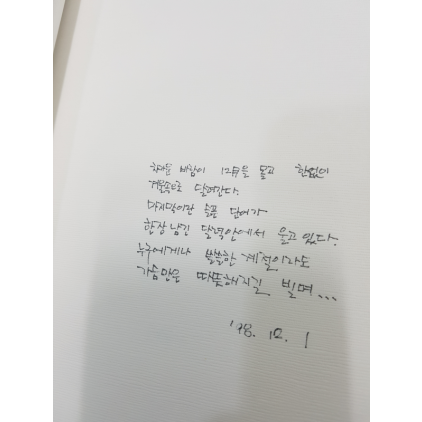 차가운 바람이 12月을 몰고 한없이
겨울속으로 달려간다.
마지막이란 슬픈 단어가
한장 남긴 달력안에서 울고 있다.
누구에게나 쓸쓸한 계절이라도
가슴만은 따뜻해지길 빌며...
'78. 12. 1